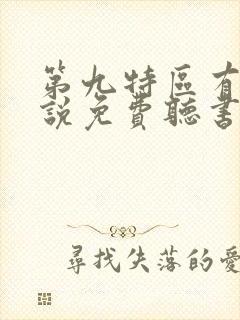 第九特區有
說免費聽書
尋找失落的愛